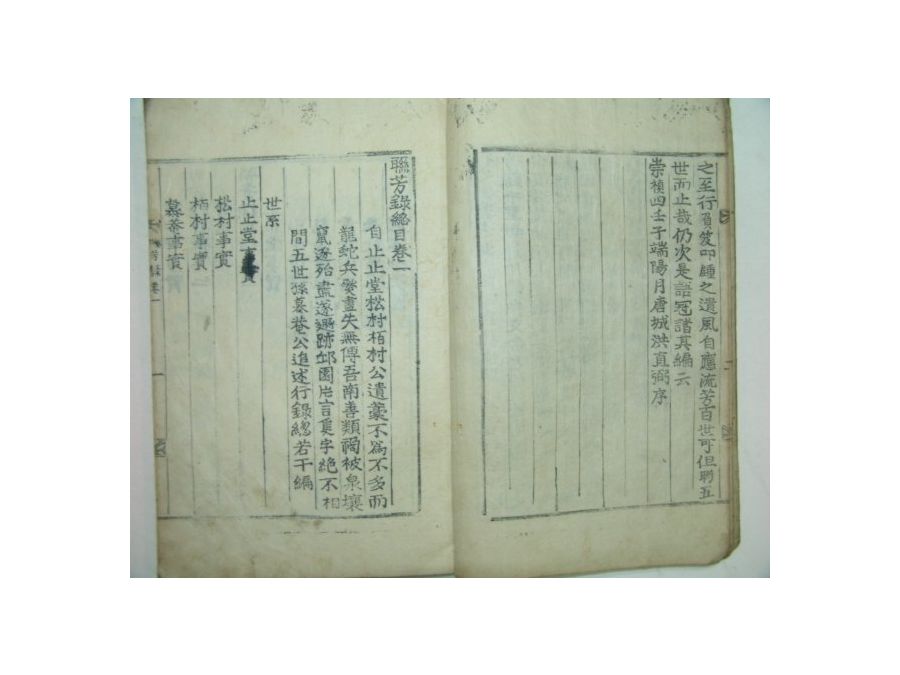 之至行爲發卬踵之遺風自應流芳百世可但聯五
世而止哉仍次是語冠諸其編云
崇禎四壬子端陽月唐城洪直弼序
聯芳錄總目卷一
自止止堂松村栢村公遺藁不爲不多而
龍蛇兵燹盡失無傳吾南善類禍被泉壤
竄逐殆盡遂遯跡邱園片言隻字絶不相
間五世孫慕菴公追述行錄總若干編
世系
止止堂事實
松村事實
栢村事實
慕菴事實